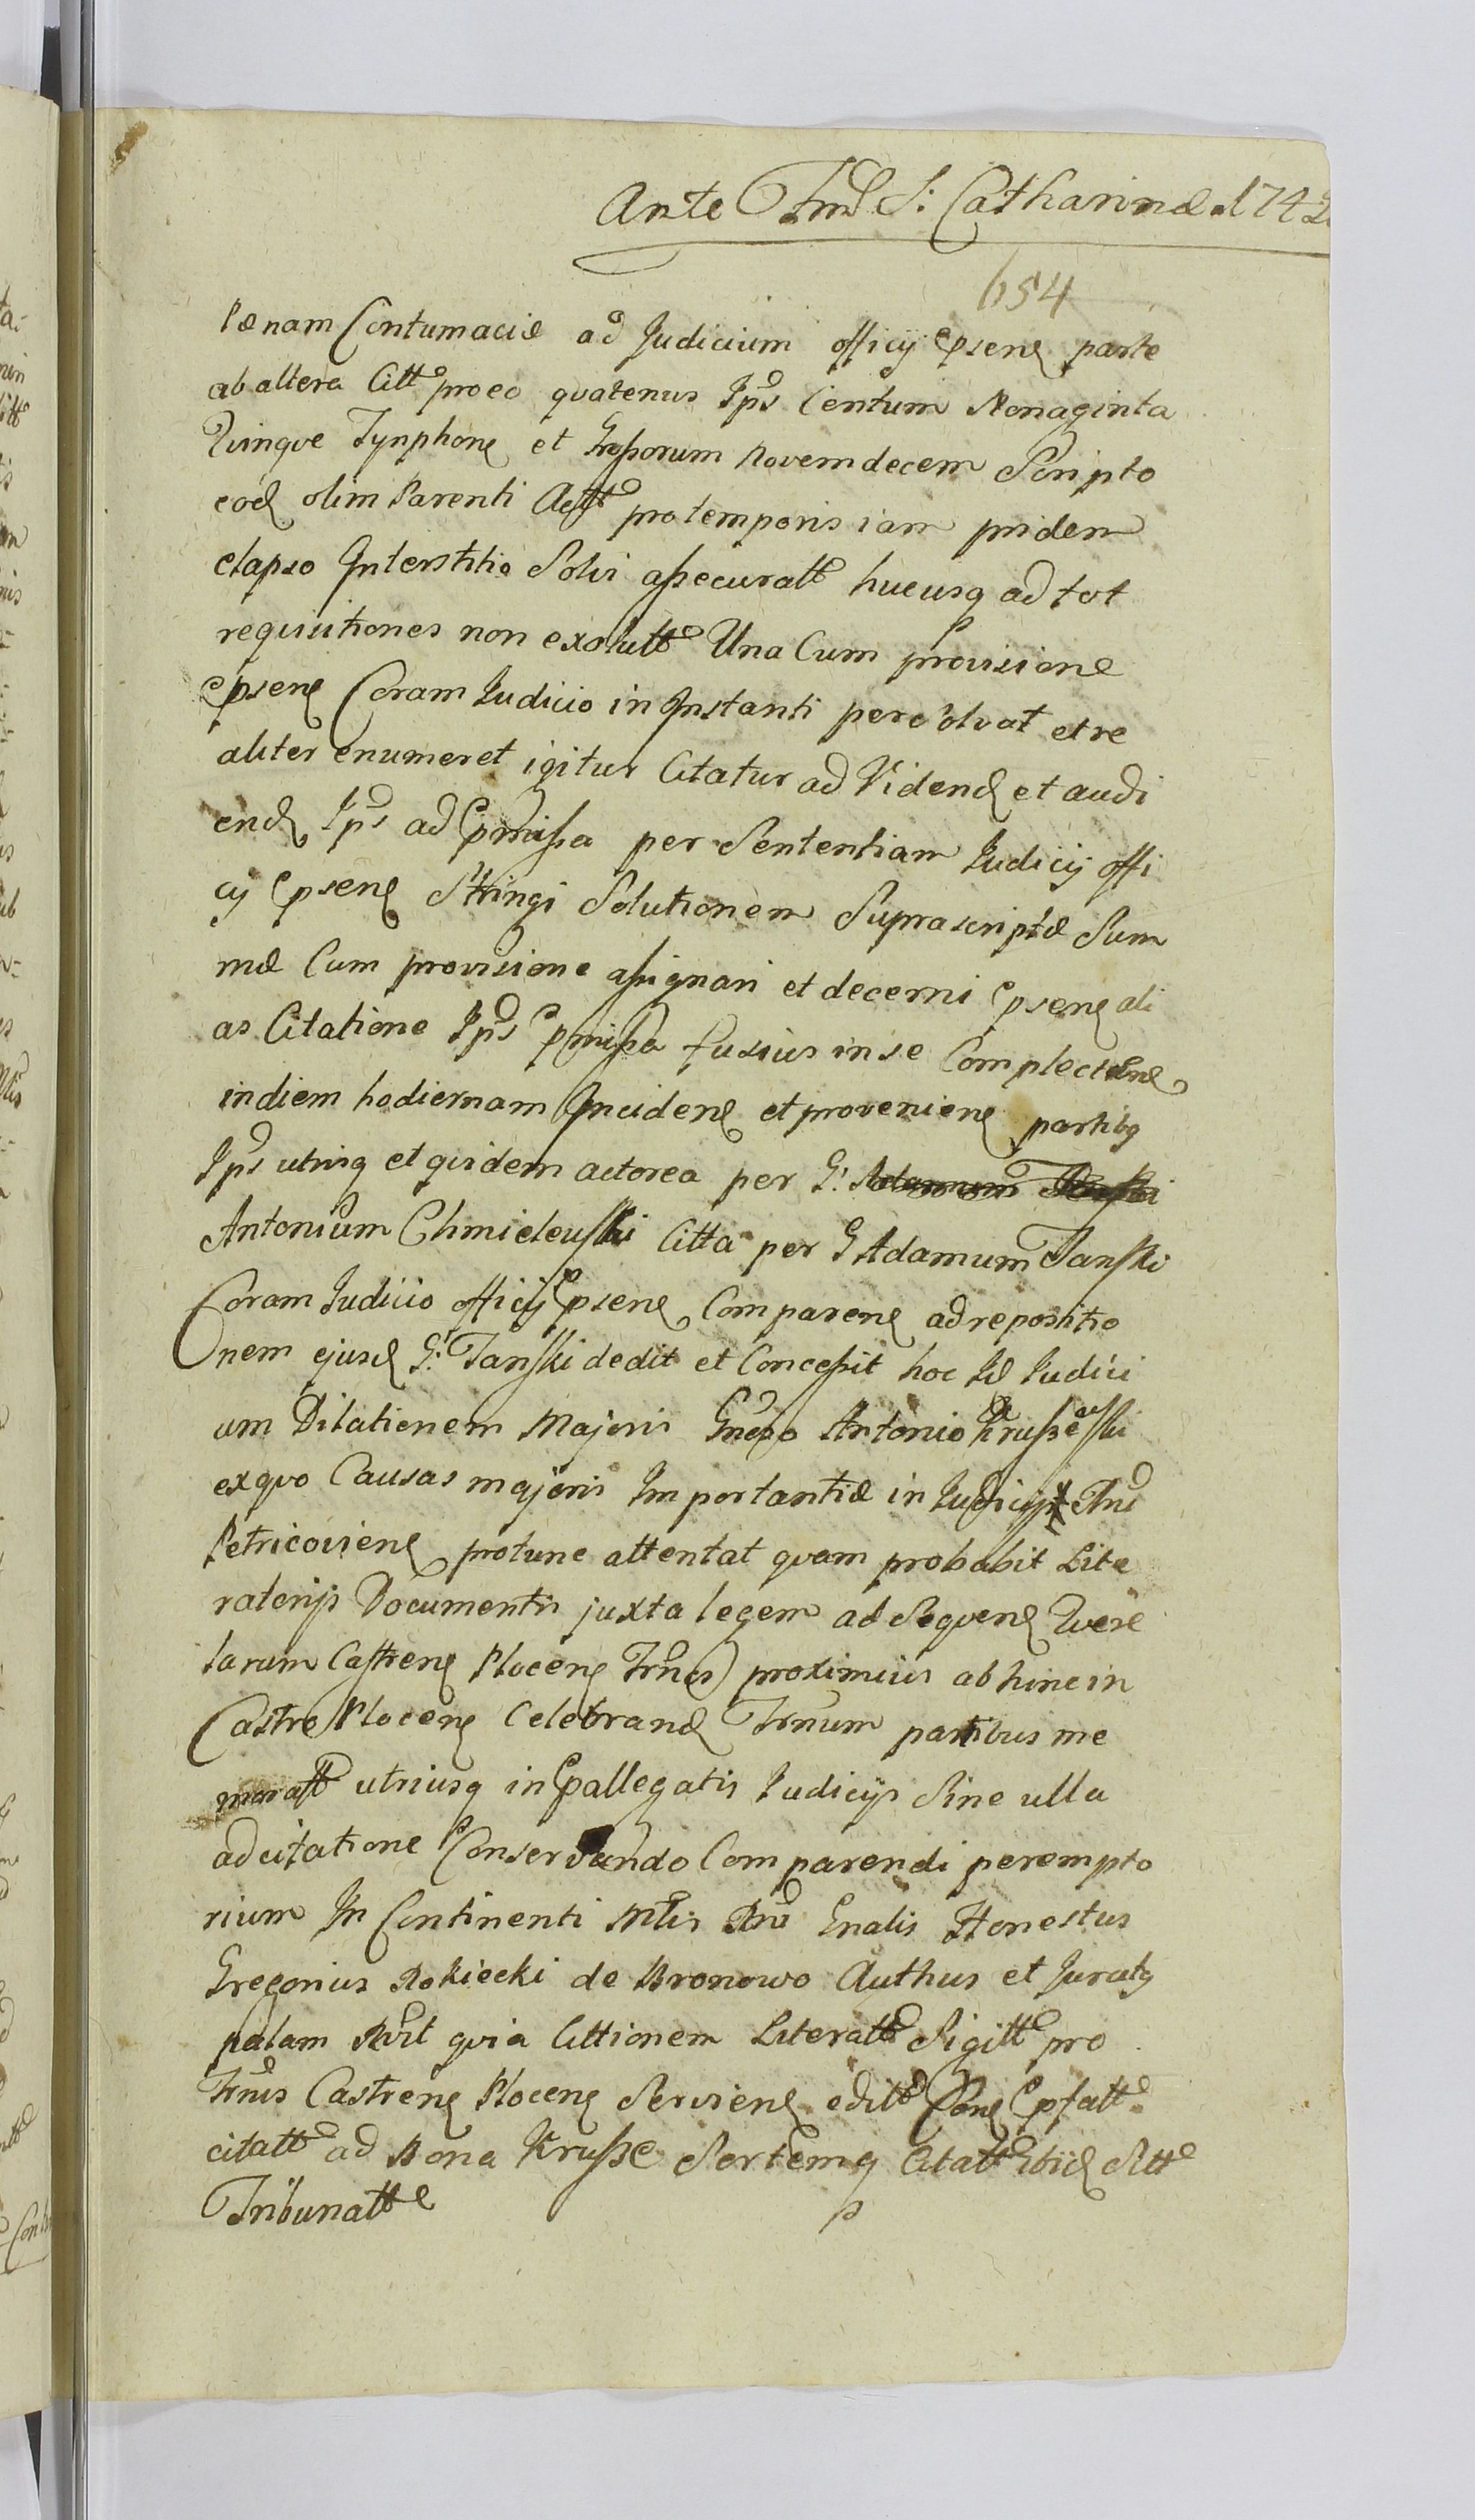 Ante Fmd S: Catharinæ 1742
654
Pænam Contumaciæ ad Judicium officij Pnsens parte
ab altera Citt pro eo quatenus Ipsd Centum Nonaginta
Quinque Tynphons et Großorum Novemdecem Scripto
eod olim Parenti Actt pro temporis iam pridem
elapso Interstitio Solvi aßecuratt hucusq ad tot
requisitiones non exolutt Una Cum provisione
pnsens Coram Judicio in Instanti persolvat et re
aliter enumeret igitur Citatur ad Vidend et audi
end Ipsd ad Pmißa per Sententiam Judicij offi
cij Pnsens Stringi Solutionem Suprascriptæ Sum
mæ Cum provisione aßignari et decerni Pnsens ali
as Citatione Ipsd Pmißa fusius in se Complectens
in diem hodiernam Incidens et proveniens partibq
Ipsd utrisq et quidem actorea per G:
Antonium Chmieleuski Citta per G Adamum Tanski
Coram Judicio officij Pnsens Comparens ad repositio
nem ejusd G: Tanski dedit et Conceßit hoc Id Judici
um Dilationem Majoris Gneso Antonio Krußeski
ex quo Causas majoris Importantiæ in Judicijs Trs
Petricoviens pro tunc attentat quam probabit Lite
ratorijs Documentis juxta legem ad Sequens Quere
larum Castrens Plocens Trnos proximius ab hinc in
Castro Plocens Celebrand Trnum partibus me
moratt utriusq in Pallegatis Judicijs Sine ulla
adcitatione Conservando Comparendi perempto
rium In Continenti Mtis Rni Gnalis Honestus
Gregorius Rokiecki de Bronowo Authus et Juratq
palam Rvit quia Cittionem Literatt Sigilt pro
Trnis Castrens Plocens Serviens editt Pone Pfatt
citatt ad Bona Kruße Sortemq Citatt Ibid Sitt
Tribunatt